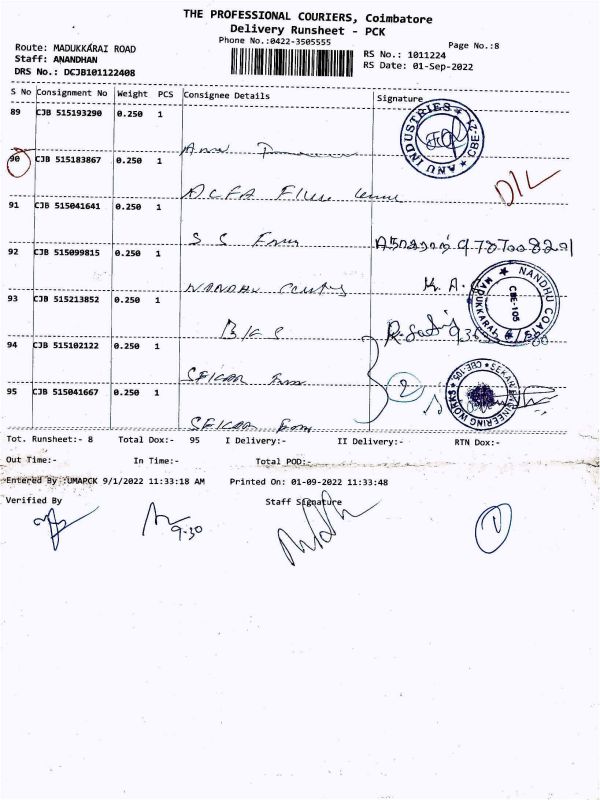 THE PROFESSIONAL COURIERS, Coimbatore
Delivery Runsheet - PCK
Phone No.:0422-3505555
Page No.:8
Route: MADUKKÁRAI ROAD
Staff: ANANDHAN
DRS No.: DCJB101122408
RS No.: 1011224
RS Date: 01-Sep-2022
S No Consignment No Weight PCS Consignee Details Signature
89 CJB 515193290 0.250 1
ANU INDUSTRIES ★ CBE-21 ★
90 CJB 515183867 0.250 1
D/L
91 CJB 515041641 0.250 1
S S
92 CJB 515099815 0.250 1
K. A.
NANDHU MADUKKARAI CBE-105
93 CJB 515213852 0.250 1
94 CJB 515102122 0.250 1
2
SEKAR ENGINEERING WORKS ★ CBE-105 ★
95 CJB 515041667 0.250 1
Tot. Runsheet:- 8 Total Dox:- 95 I Delivery:- II Delivery:- RTN Dox:-
Out Time:- In Time:- Total POD:-
Entered By :UMAPCK 9/1/2022 11:33:18 AM Printed On: 01-09-2022 11:33:48
Verified By Staff Signature
9-30
1